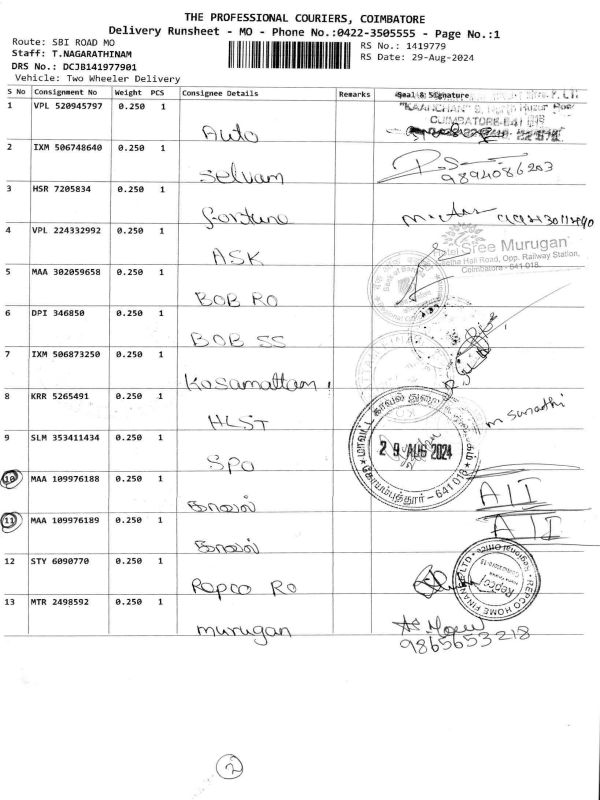 THE PROFESSIONAL COURIERS, COIMBATORE
Delivery Runsheet - MO - Phone No.:0422-3505555 - Page No.:1
Route: SBI ROAD MO
RS No.: 1419779
Staff: T.NAGARATHINAM
RS Date: 29-Aug-2024
DRS No.: DCJB141977901
Vehicle: Two Wheeler Delivery
S No Consignment No Weight PCS Consignee Details Remarks Seal & Signature
1 VPL 520945797 0.250 1 Auto
"KAANCHAN" 9, North Huzur Road
COIMBATORE-641 018
2 IXM 506748640 0.250 1 Selvam 9894086203
3 HSR 7205834 0.250 1 fortune
4 VPL 224332992 0.250 1 ASK
Hotel Sree Murugan
Road, Opp. Railway Station,
Coimbatore - 641 018.
5 MAA 302059658 0.250 1 BOB RO
6 DPI 346850 0.250 1 BOB SS
7 IXM 506873250 0.250 1 Kosamattam
8 KRR 5265491 0.250 1 HLST
9 SLM 353411434 0.250 1 SPO
மாவட்ட காவல்
29 AUG 2024
கோயம்புத்தூர் - 641 018
10 MAA 109976188 0.250 1 காவல்
11 MAA 109976189 0.250 1 காவல்
12 STY 6090770 0.250 1 Repco Ro
REPCO HOME FINANCE LTD
Regional Office
Repco
13 MTR 2498592 0.250 1 murugan
9865653218
2